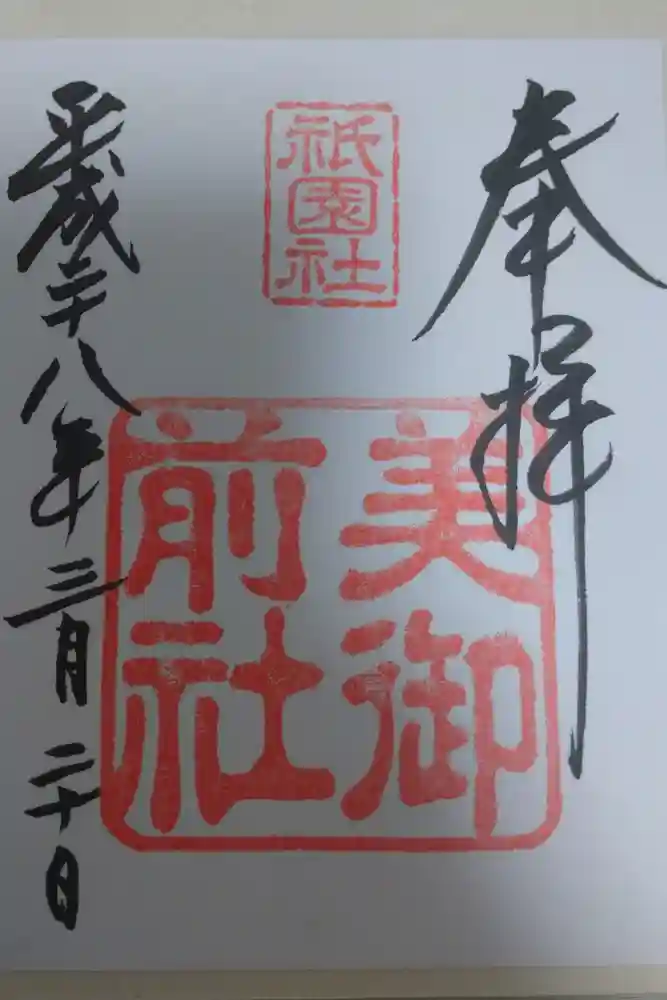 奉拝
祇園社
美御前社
平成二十八年三月二十日